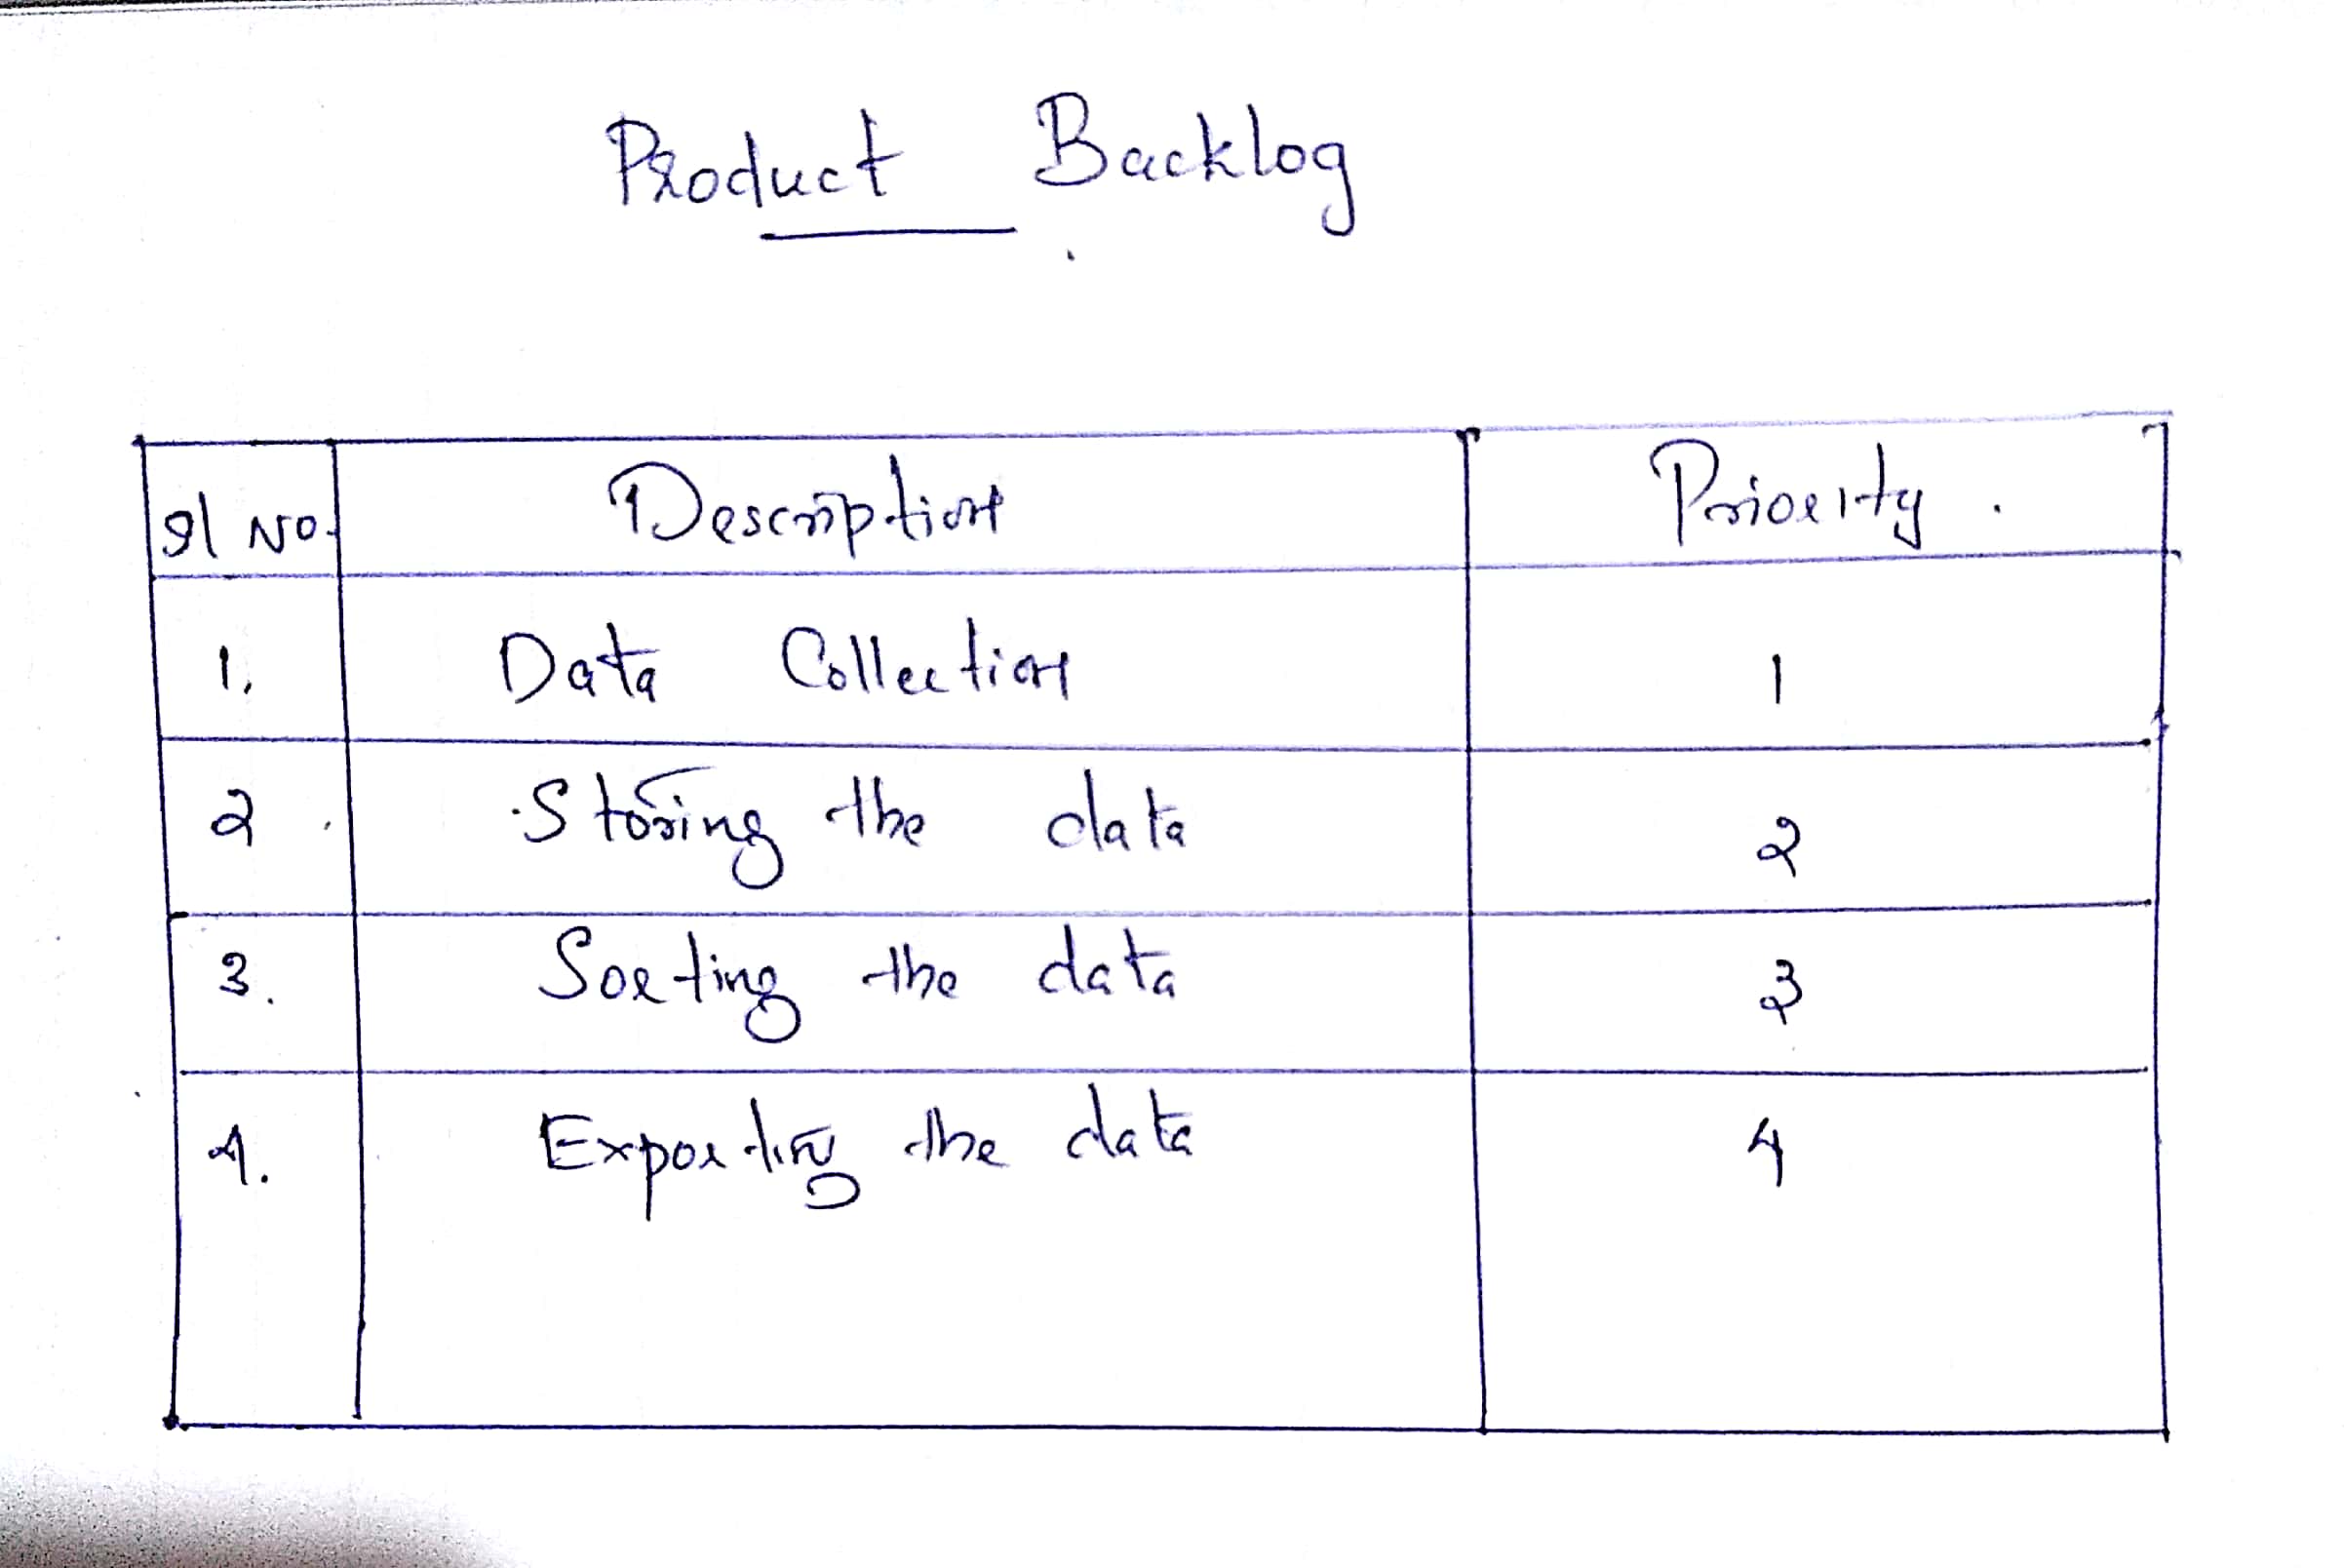 Product Backlog
Sl No. Description Priority.
1. Data Collection 1
2. Storing the data 2
3. Sorting the data 3
4. Exporting the data 4